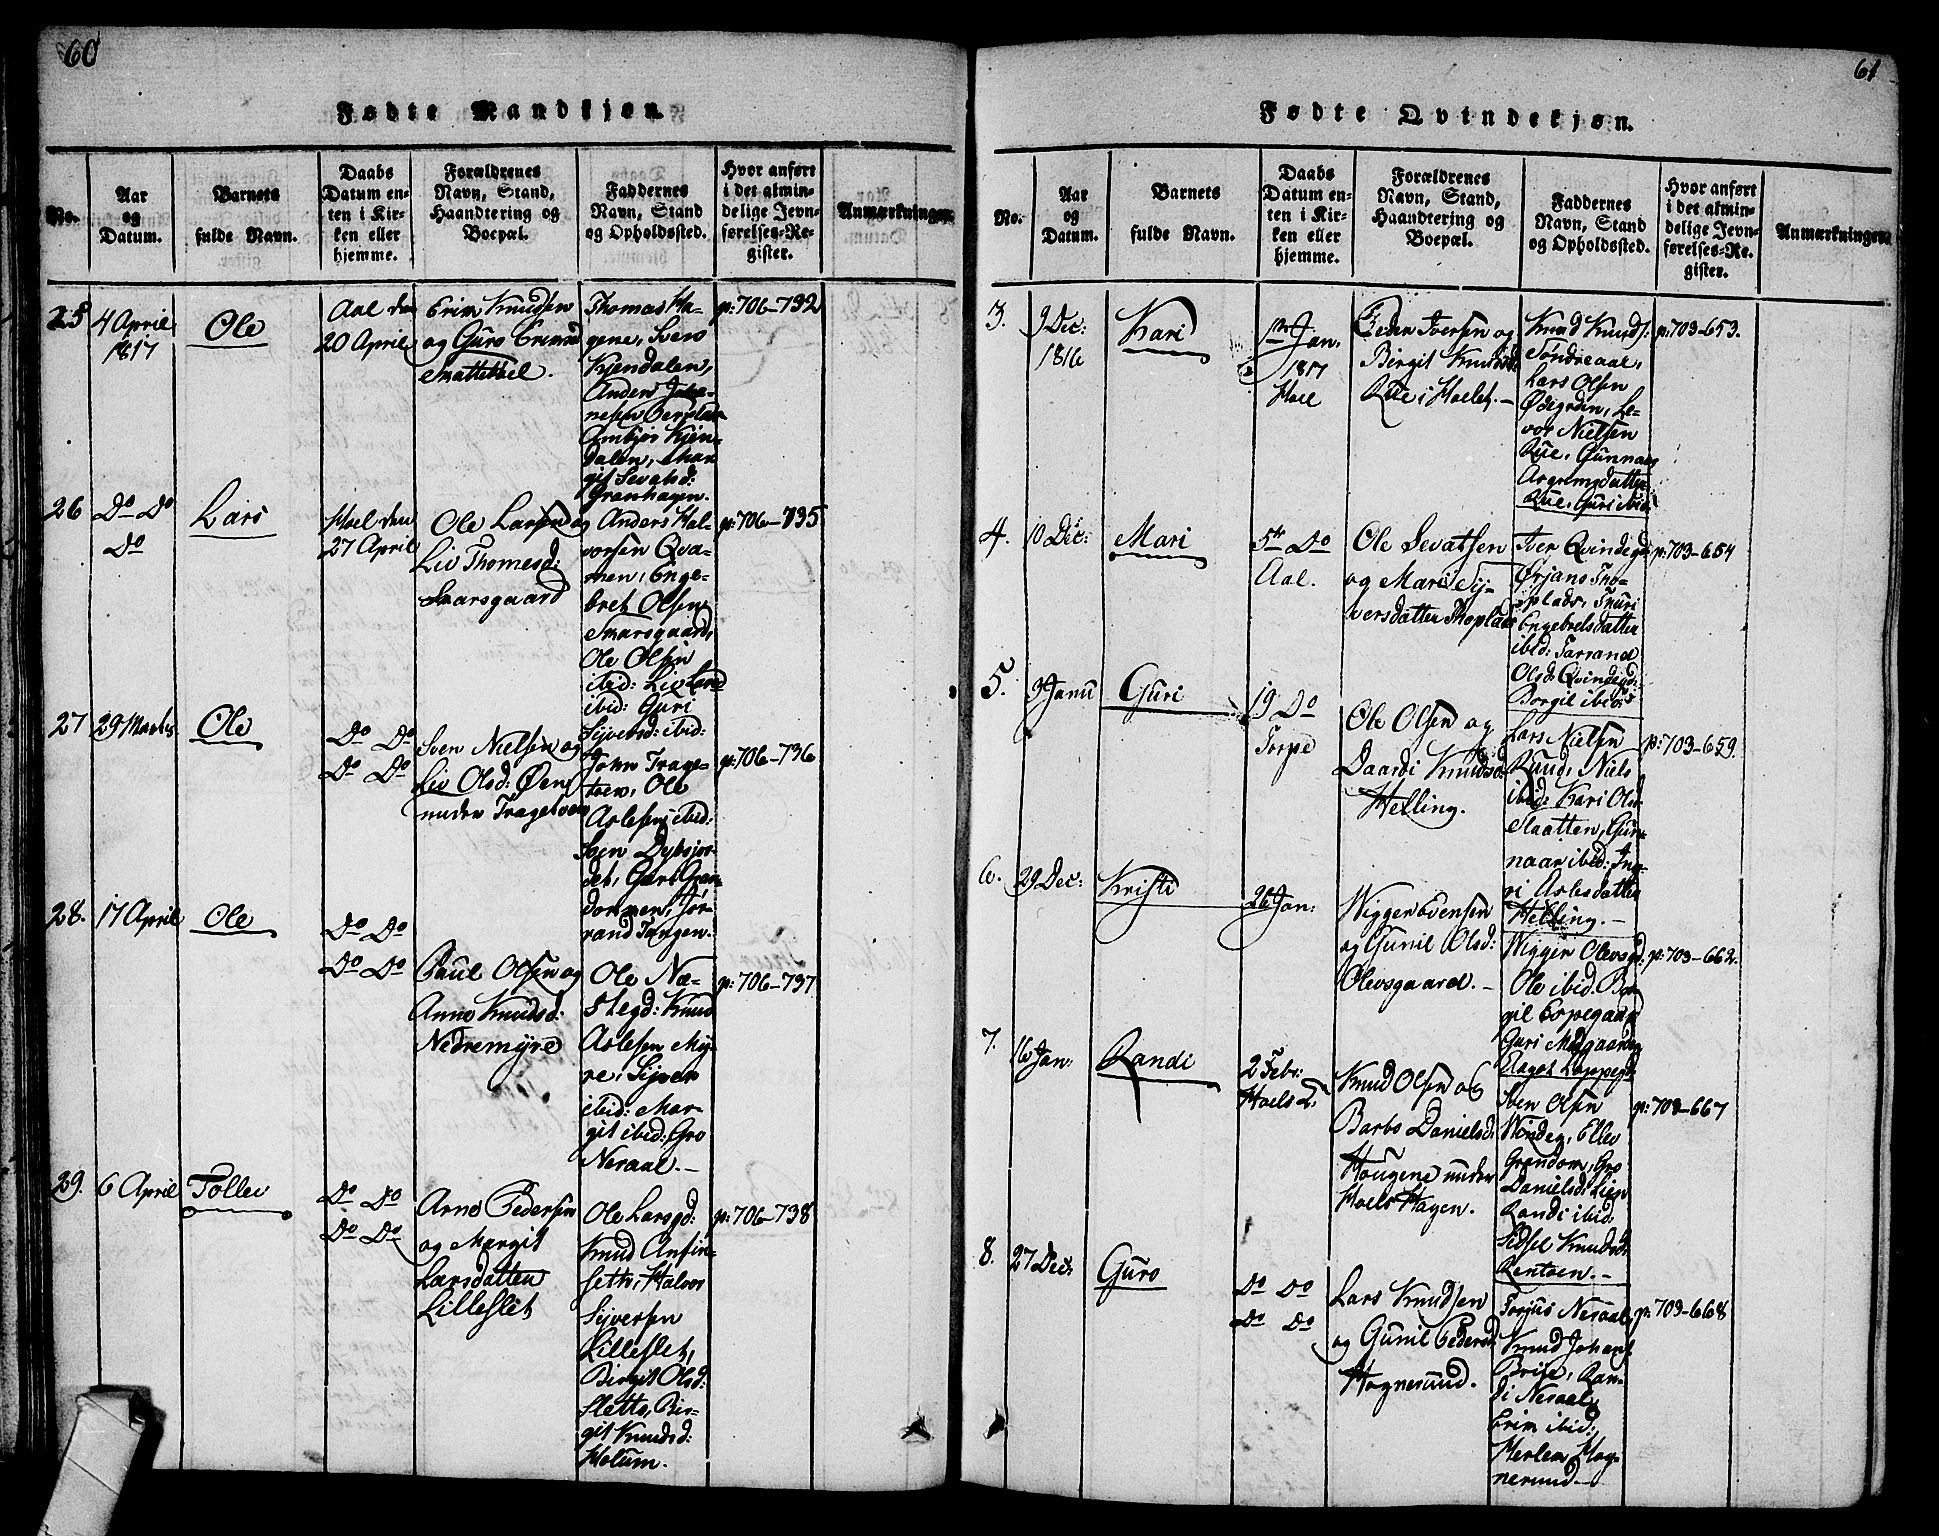 60
Fødte Mandkjøn.
No.
Aar
og
Datum.
Barnets
fulde Navn.
Daabs
Datum en-
ten i Kir-
ken eller
hjemme.
Forældrenes
Navn, Stand,
Haandtering og
Boepæl.
Faddernes
Navn, Stand
og Opholdssted.
Hvor anført
i det almin-
delige Jevn-
førelses-Re-
gister.
Anmærkninger.
25
4 April
1817
Ole
Aal den
20 April
Erim Knudsen
og Guro
Thomas Ha-
gene, Svero
Kjendalen,
Anders Joha-
nesen
Ambjør Kjen-
dalen, Mar
git Sevatsd:
Granhagen.
p: 706-732
26
Do Do
Do
Lars
Hoel den
27 April
Ole Larsen og
Liv Thomesd:
Skarsgaard
Anders Hal-
vorsen Qva-
men, Enge-
bret Olsen
Skarsgaard,
Ole Olsen
ibid: Liv Larsd
ibid: Guri
Sijversd: ibid:
p: 706-735
27
29 Martz
Ole
Do Do
Do Do
Sven Nielsen og
Liv Olsd: Øen
under Tragetoen
John Trage-
toen, Ole
Aslesen ibid:
Sven Dybsjor-
det, Guri Gran-
dommen, Jør-
rand Tangen.
p: 706-736
28.
17 April
Ole
Do Do
Do Do
Paul Olsen og
Anne Knudsd:
Nedremyre
Ole Næ-
stegd: Knud
Aslesen My-
re, Sijver
ibid: Mar-
git ibid: Gro
Neraal.-
p: 706-737
29.
6 April
Tollev
Do Do
Do Do
Arne Pedersen
og Margit
Larsdatter
Lilleslet
Ole Larsgd:
Knud Anfin-
sett, Halvor
Sijversen
Lilleslet,
Birgit Olsd:
Sletto, Bir-
git Knudsd:
Holum.
p: 706-738
61
Fødte Qvindekjøn.
No.
Aar
og
Datum.
Barnets
fulde Navn.
Daabs
Datum en-
ten i Kir-
ken eller
hjemme.
Forældrenes
Navn, Stand,
Haandtering og
Boepæl.
Faddernes
Navn, Stand
og Opholdssted.
Hvor anført
i det almin-
delige Jevn-
førelses-Re-
gister.
Anmærkninger.
3.
9 Dec:
1816
Kari
1ste Jan.
1817
Hoel
Peder Iversen og
Birgit Knudsd
Rue i Hoelet.-
Knud Knuds:
Søndreaal,
Lars Olsen
Ødegrden, Le-
vor Nielsen
Rue, Gunnar
Argrimsdatter
Rue, Guri ibid
p: 703-653.
4.
10 Dec:
Mari
5te Do
Aal.
Ole Sevatsen
og Mari Sij-
versdatter Thoplads
Iver Qvindegd:
Ørjans Tho-
plads, Thuri
Engebretsdatter
ibid: Tarrand
Olsd: Qvindegd:
Borgil ibid:
p: 703-654
5.
3 Janu
Guri
19 Do
Torpe
Ole Olsen og
Daardi Knudsd:
Helling.
Lars Nielsen
Ruud, Niels
ibid: Kari Olsd
Slaatten, Gun-
naar ibid: Ing-
ri Aslesdatter
Helling.-
p: 703-659.
6.
29 Dec:
Kristi
26 Jan:
Wigger Svensen
og Gunil Olsd:
Olevsgaard.-
Wigger Olevsgd:
Ole ibid: Bor
gil Espegaard
Guri Medgaarden
Aagot Loppegd:
p: 703-662.
7.
16 Jan:
Randi
2 Febr:
Hoels
Knud Olsen og
Barbo Danielsd:
Hougene under
Hoels Hagen.
Sven Olsen
Windeg, Ellev
Grøndom, Gro
Danielsd: Lien
Randi ibid:
Sidsel Knudsd:
Rentoen.-
p: 703-667
8.
27 Dec:
Guro
Do Do
Do Do
Lars Knudsen
og Gunil Pedersd
Hagnesund.
Torjus Neraal,
Knud Johans
Brise, Ran-
di Neraal,
Erim ibid:
Merlen Hag-
nesund.-
p: 703-668